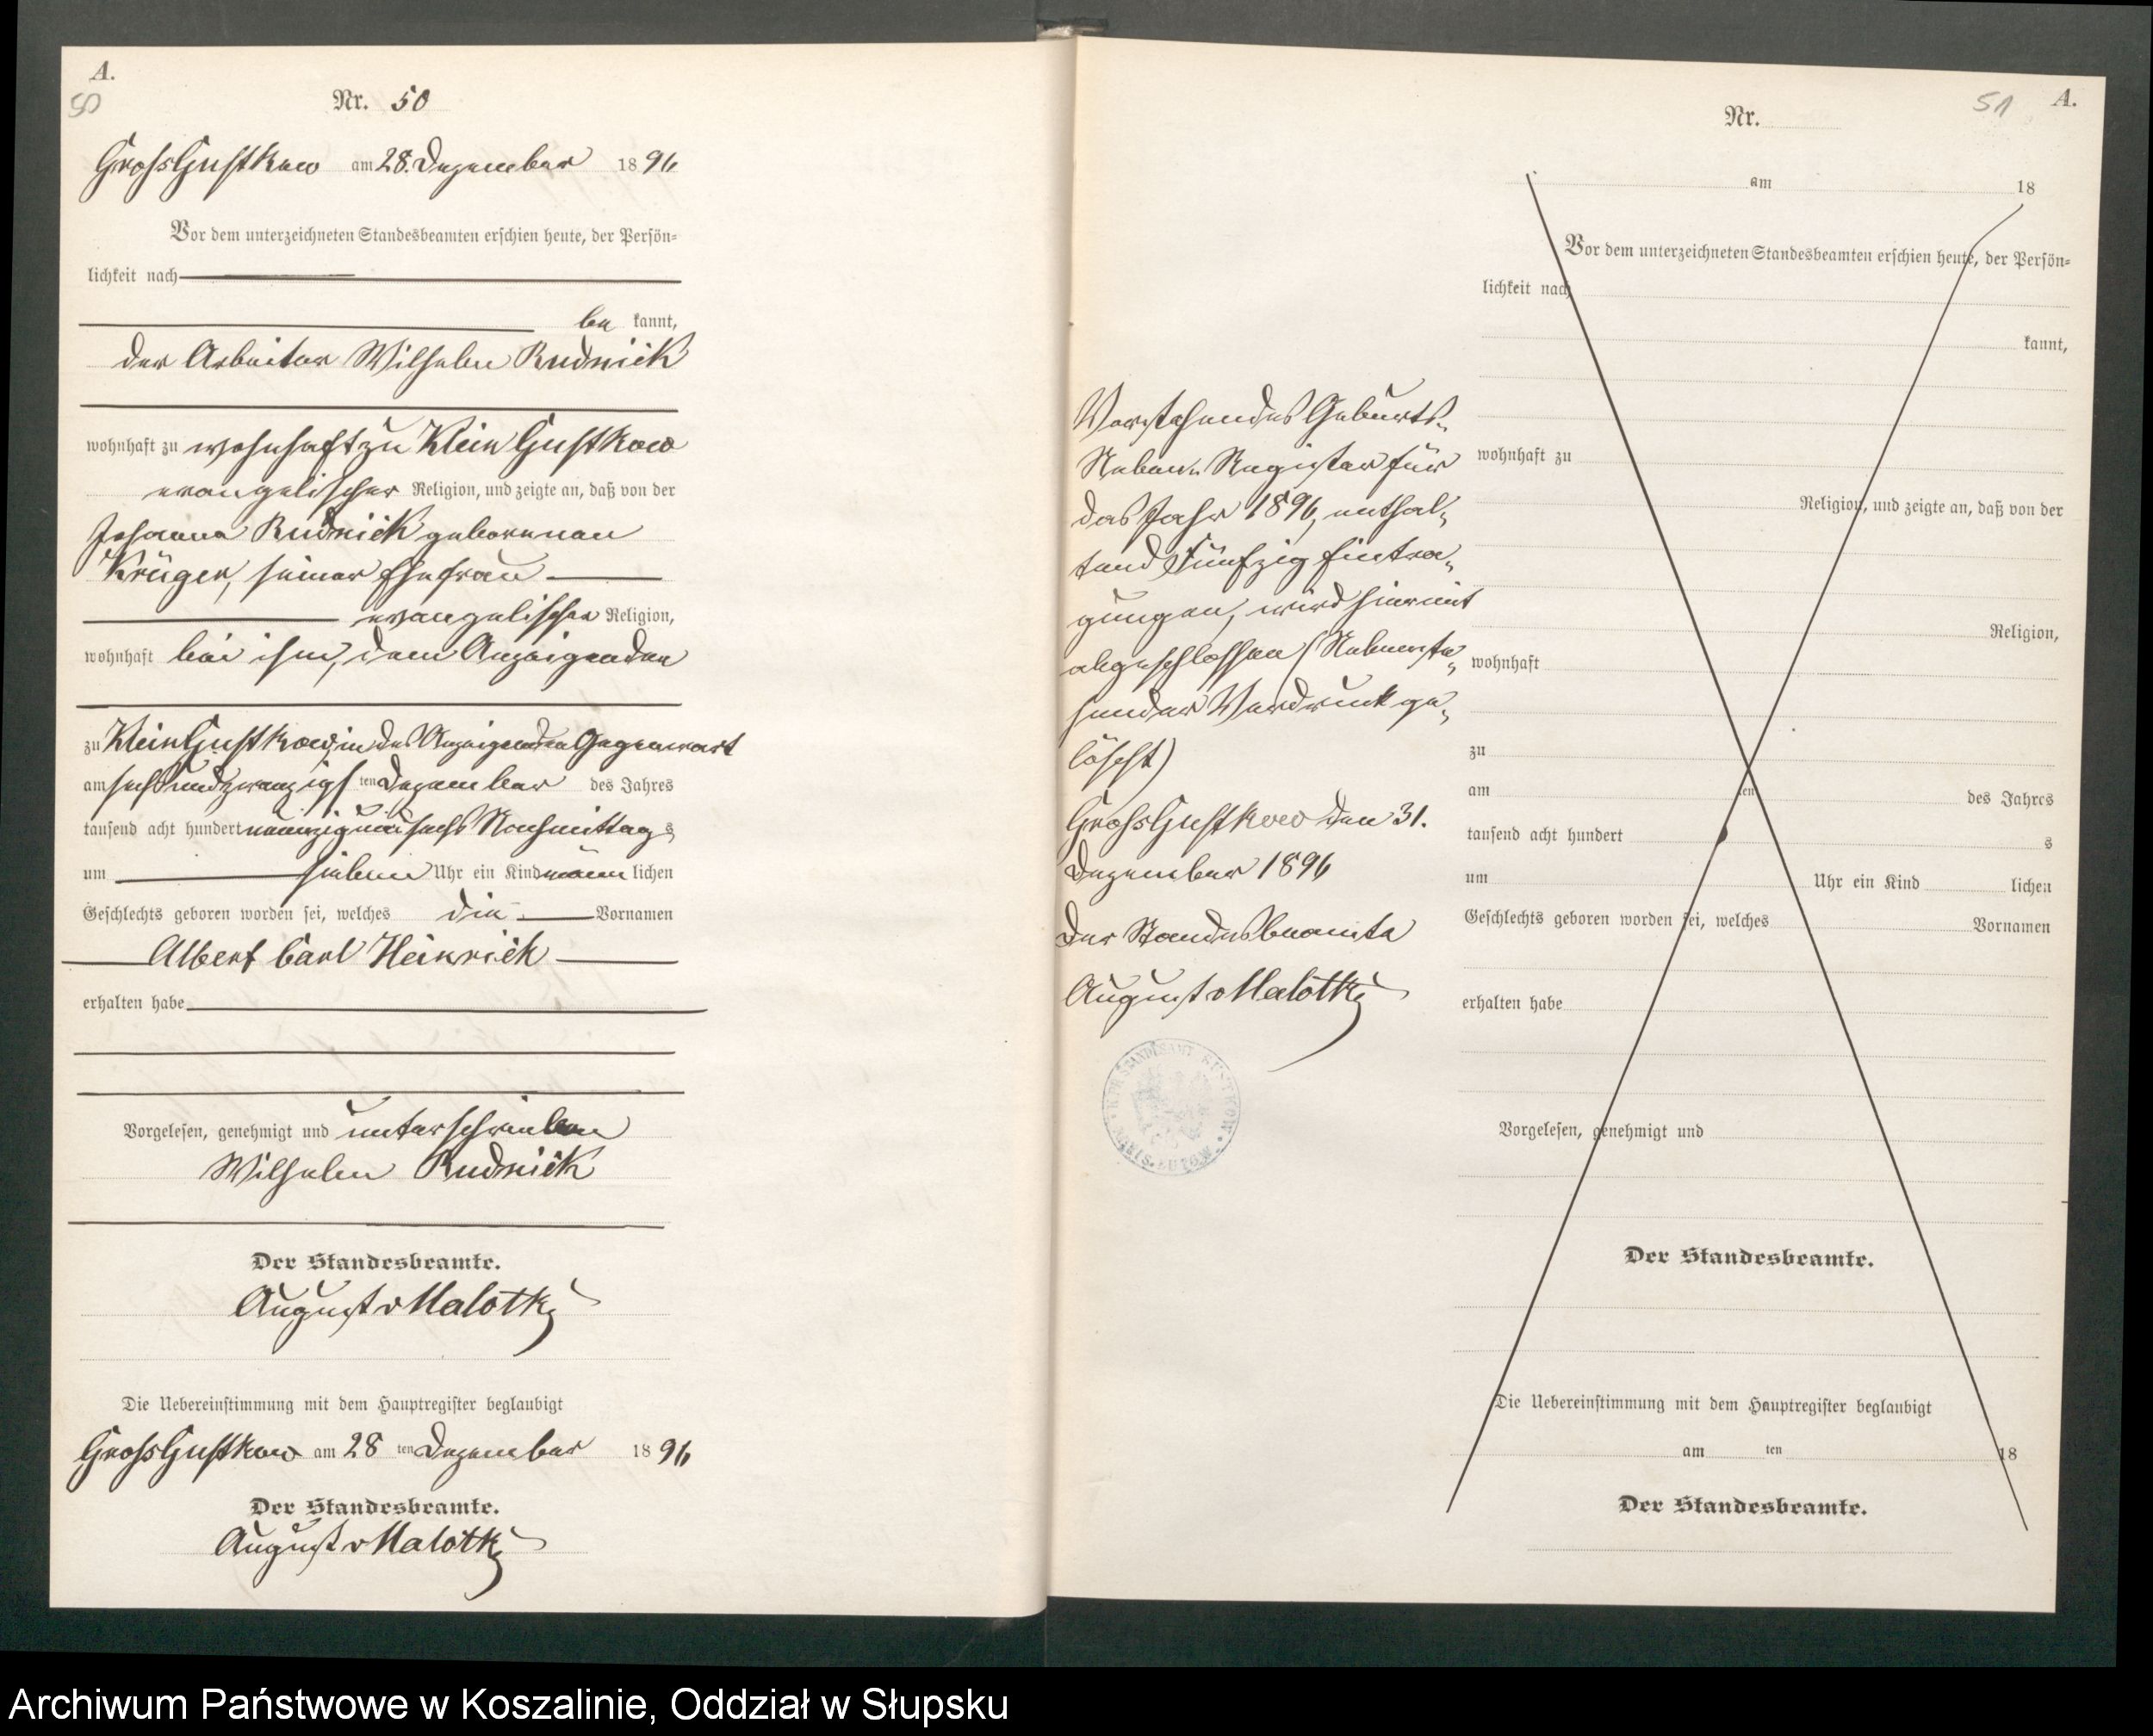 A.
50
Nr. 50
Gross Gustkow am 28. Dezember 1896
Vor dem unterzeichneten Standesbeamten erschien heute, der Persön-
lichkeit nach
be kannt,
der Arbeiter Wilhelm Rudnick
wohnhaft zu wohnhaft zu Klein Gustkow
evangelischer Religion, und zeigte an, daß von der
Johanna Rudnick geborenen
Krüger, seiner Ehefrau
evangelischer Religion,
wohnhaft bei ihm, dem Anzeigenden
zu Klein Gustkow, in des Anzeigenden Gegenwart
am sechsundzwanzigsten Dezember des Jahres
tausend acht hundert neunzig und sechs Nachmittags
um sieben Uhr ein Kind männlichen
Geschlechts geboren worden sei, welches die Vornamen
Albert Carl Heinrich
erhalten habe
Vorgelesen, genehmigt und unterschrieben
Wilhelm Rudnick
Der Standesbeamte.
August v Malottki
Die Uebereinstimmung mit dem Hauptregister beglaubigt
Gross Gustkow am 28 ten Dezember 1896
Der Standesbeamte.
August v Malottki
Vorstehendes Geburts-
Neben-Register für
das Jahr 1896, enthal-
tend Fünfzig Eintra-
gungen, wird hiermit
abgeschlossen (Nebenste-
hender Vordruck ge-
löscht)
Gross Gustkow den 31.
Dezember 1896
Der Standesbeamte
August v Malottki
51
A.
Nr.
am 18
Vor dem unterzeichneten Standesbeamten erschien heute, der Persön-
lichkeit nach
kannt,
wohnhaft zu
Religion, und zeigte an, daß von der
Religion,
wohnhaft
zu
am ten des Jahres
tausend acht hundert s
um Uhr ein Kind lichen
Geschlechts geboren worden sei, welches Vornamen
erhalten habe
Vorgelesen, genehmigt und
Der Standesbeamte.
Die Uebereinstimmung mit dem Hauptregister beglaubigt
am ten 18
Der Standesbeamte.
Archiwum Państwowe w Koszalinie, Oddział w Słupsku